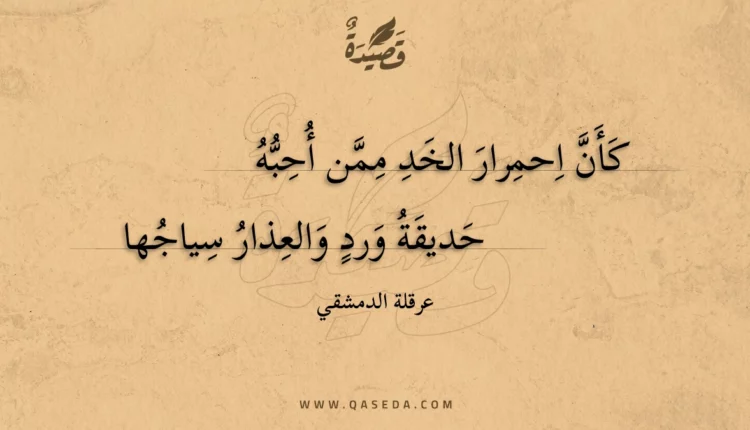 قَصِيدَةٌ
كَأَنَّ اِحمِرارَ الخَدِ مِمَّن أُحِبُّهُ
حَديقَةُ وَردٍ وَالعِذارُ سِياجُها
عرقلة الدمشقي
WWW.QASEDA.COM